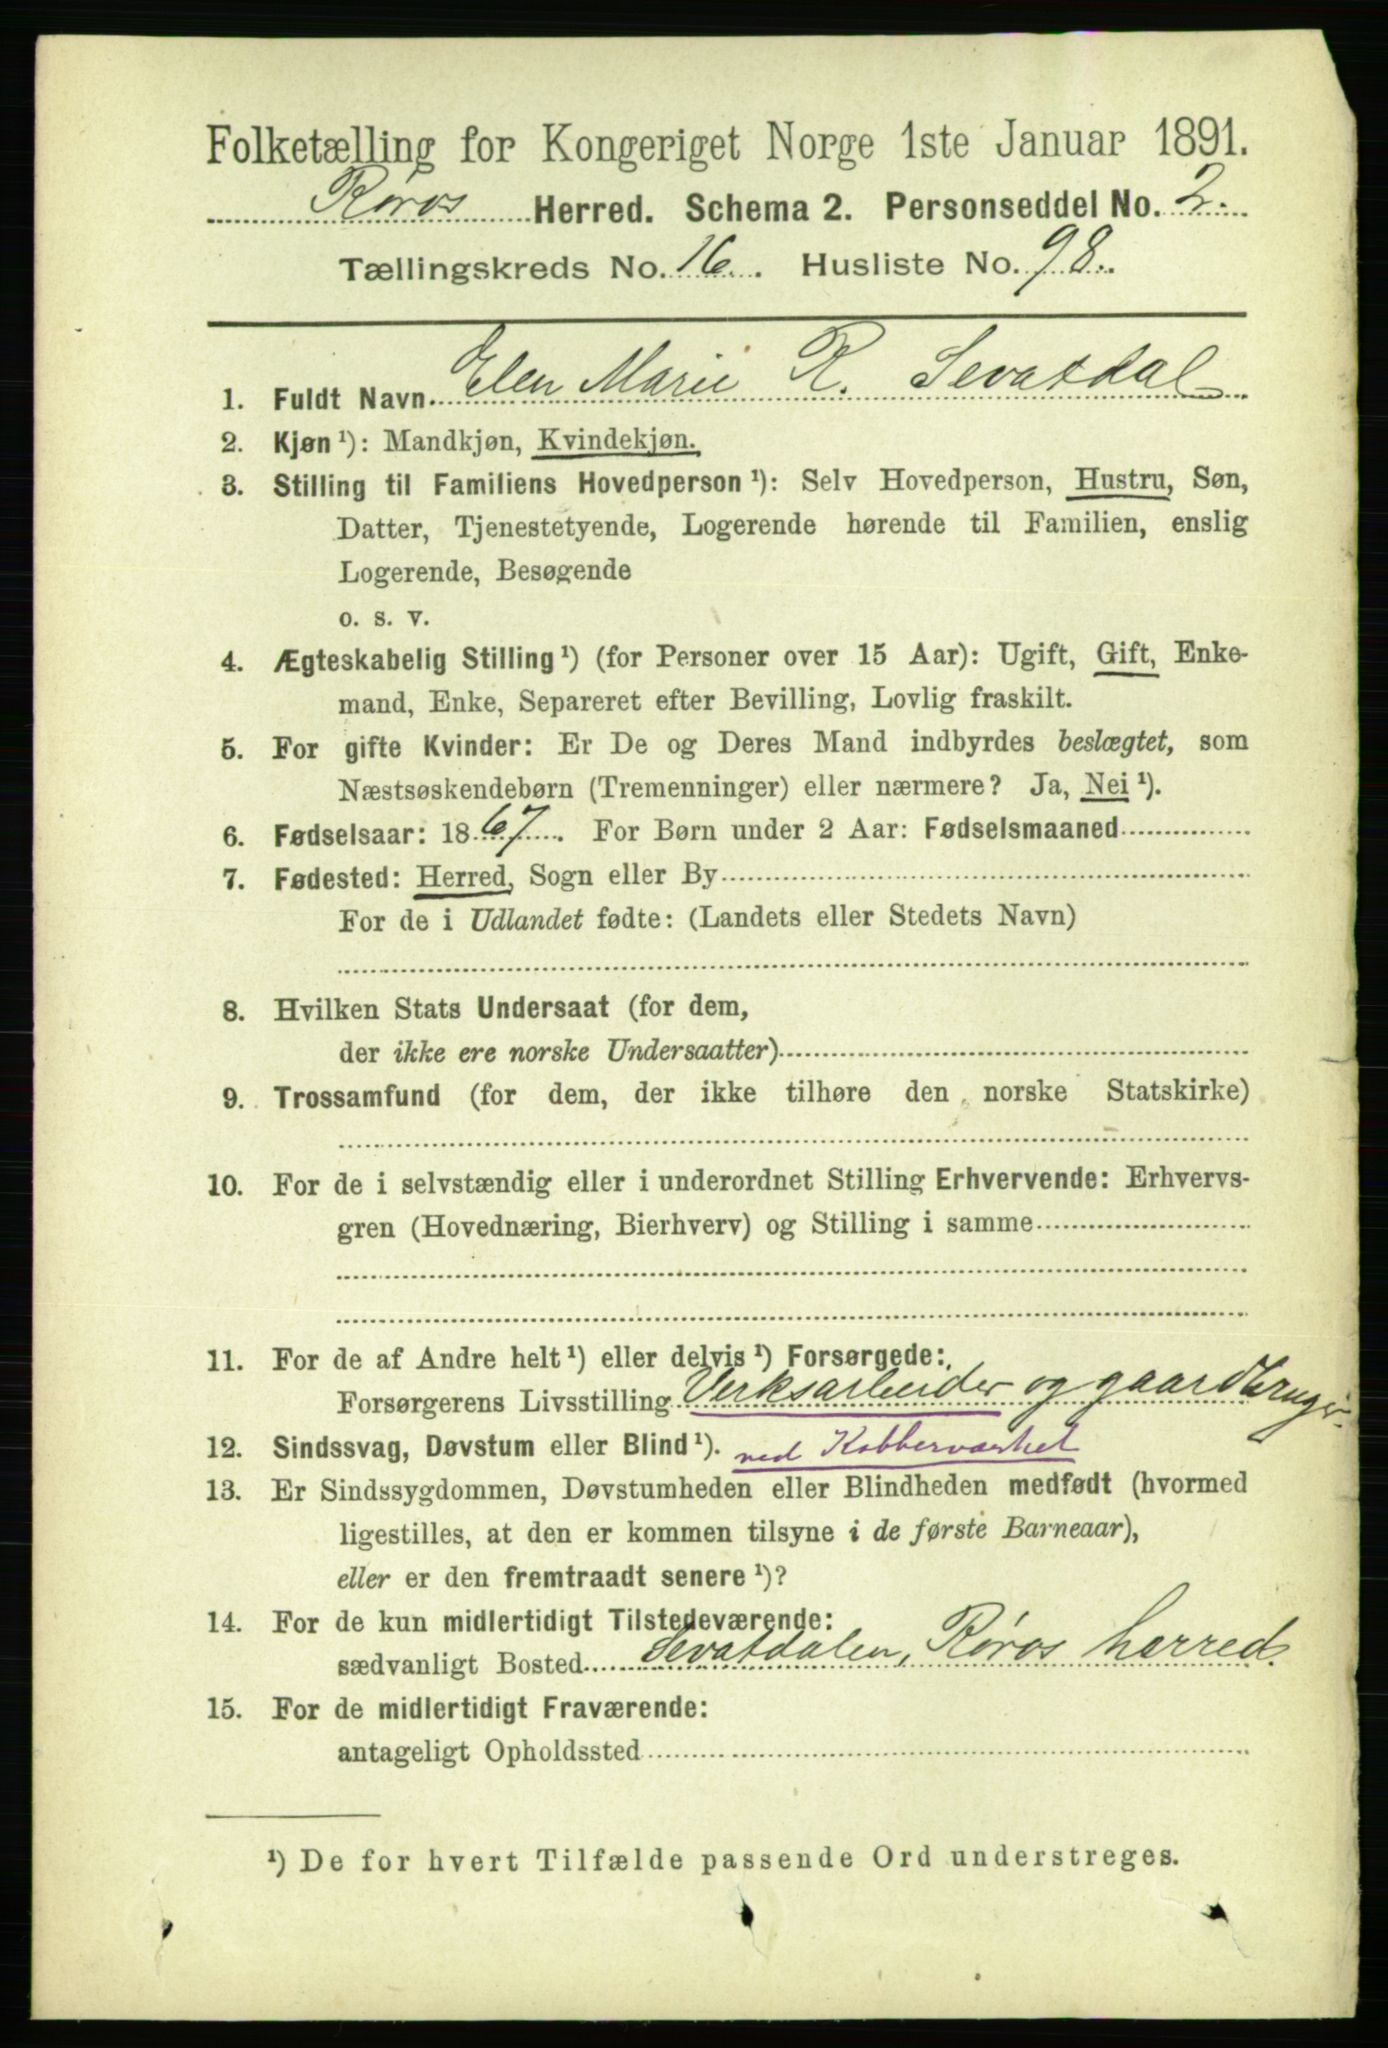 Folketælling for Kongeriget Norge 1ste Januar 1891.
Røros Herred. Schema 2. Personseddel No. 2.
Tællingskreds No. 16. Husliste No. 98.
1. Fuldt Navn Elen Marie R. Sevatdal
2. Kjøn¹): Mandkjøn, Kvindekjøn.
3. Stilling til Familiens Hovedperson¹): Selv Hovedperson, Hustru, Søn,
Datter, Tjenestetyende, Logerende hørende til Familien, enslig
Logerende, Besøgende
o. s. v.
4. Ægteskabelig Stilling¹) (for Personer over 15 Aar): Ugift, Gift, Enke-
mand, Enke, Separeret efter Bevilling, Lovlig fraskilt.
5. For gifte Kvinder: Er De og Deres Mand indbyrdes beslægtet, som
Næstsøskendebørn (Tremenninger) eller nærmere? Ja, Nei¹).
6. Fødselsaar: 1867. For Børn under 2 Aar: Fødselsmaaned
7. Fødested: Herred, Sogn eller By
For de i Udlandet fødte: (Landets eller Stedets Navn)
8. Hvilken Stats Undersaat (for dem,
der ikke ere norske Undersaatter)
9. Trossamfund (for dem, der ikke tilhøre den norske Statskirke)
10. For de i selvstændig eller i underordnet Stilling Erhvervende: Erhvervs-
gren (Hovednæring, Bierhverv) og Stilling i samme
11. For de af Andre helt¹) eller delvis¹) Forsørgede:
Forsørgerens Livsstilling Verksarbeider og gaardbruger
12. Sindssvag, Døvstum eller Blind¹). ved Kobberværket
13. Er Sindssygdommen, Døvstumheden eller Blindheden medfødt (hvormed
ligestilles, at den er kommen tilsyne i de første Barneaar),
eller er den fremtraadt senere¹)?
14. For de kun midlertidigt Tilstedeværende:
sædvanligt Bosted Sevatdalen, Røros herred.
15. For de midlertidigt Fraværende:
antageligt Opholdssted
¹) De for hvert Tilfælde passende Ord understreges.